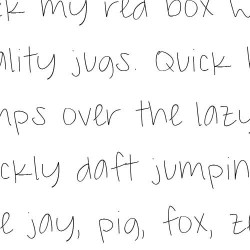 ck my red box w
ality jugs. Quick
mps over the lazy
ckly daft jumpin
e jay, pig, fox, z